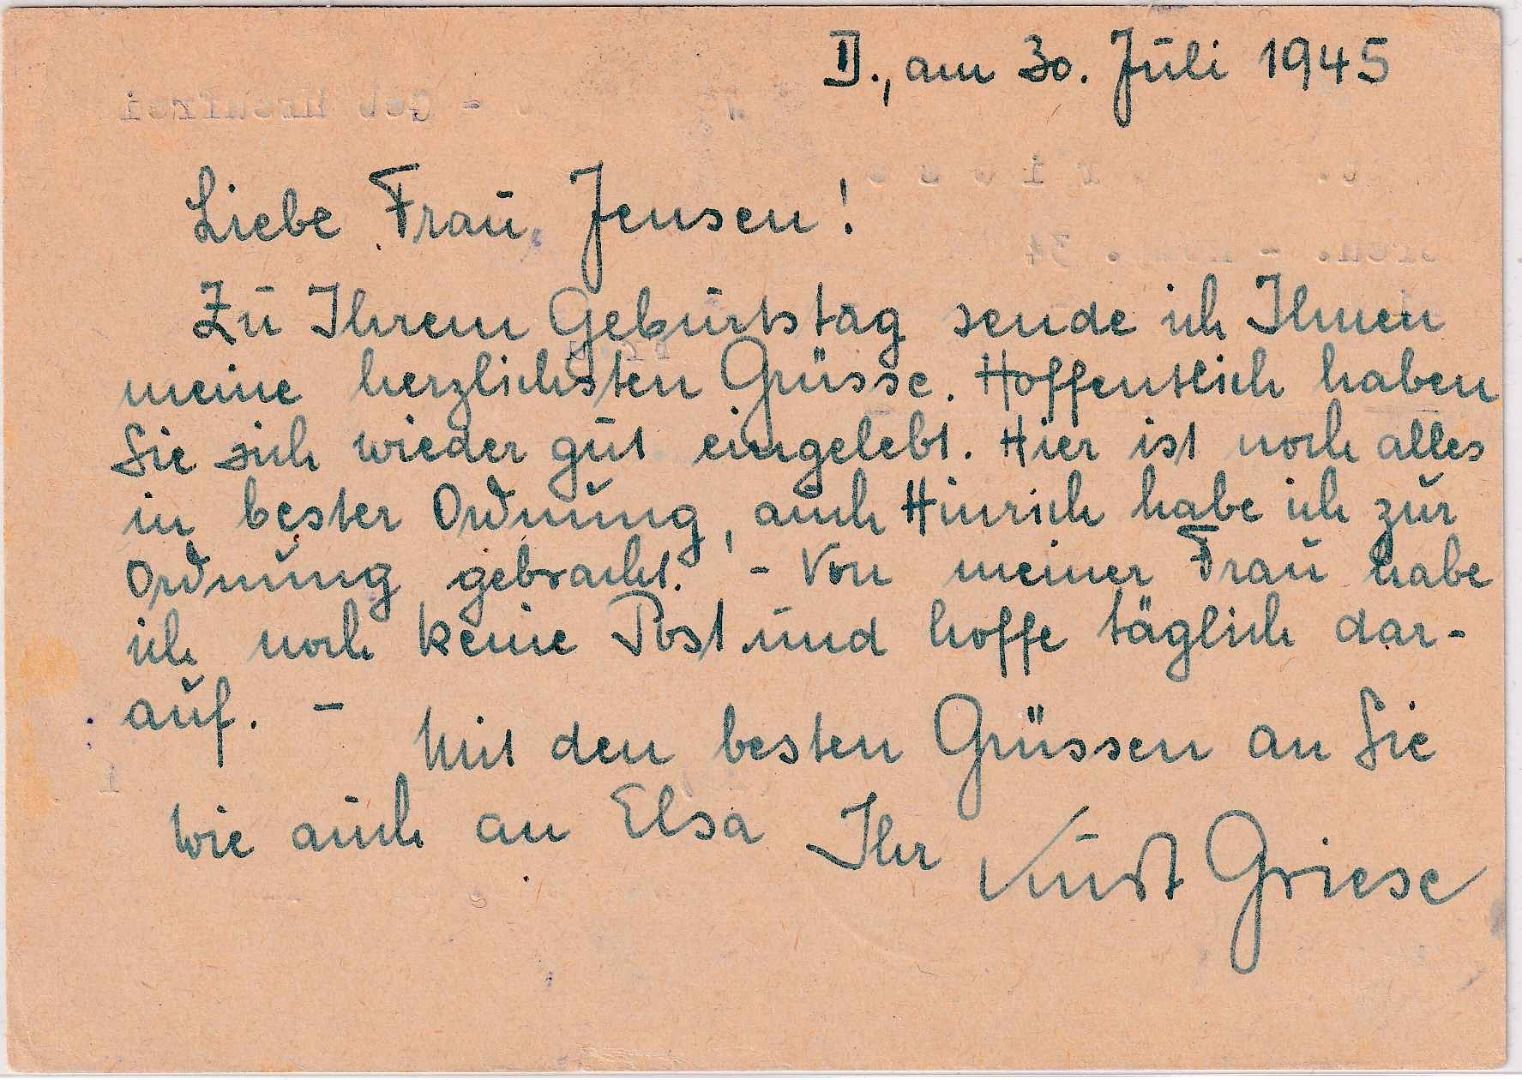 D., am 30. Juli 1945
Liebe Frau Jensen!
Zu Ihrem Geburtstag sende ich Ihnen
meine herzlichsten Grüsse. Hoffentlich haben
Sie sich wieder gut eingelebt. Hier ist noch alles
in bester Ordnung, auch Hinrich habe ich zur
Ordnung gebracht. - Von meiner Frau habe
ich noch keine Post und hoffe täglich dar-
auf. -
Mit den besten Grüssen an Sie
wie auch an Elsa Ihr Kurt Griese